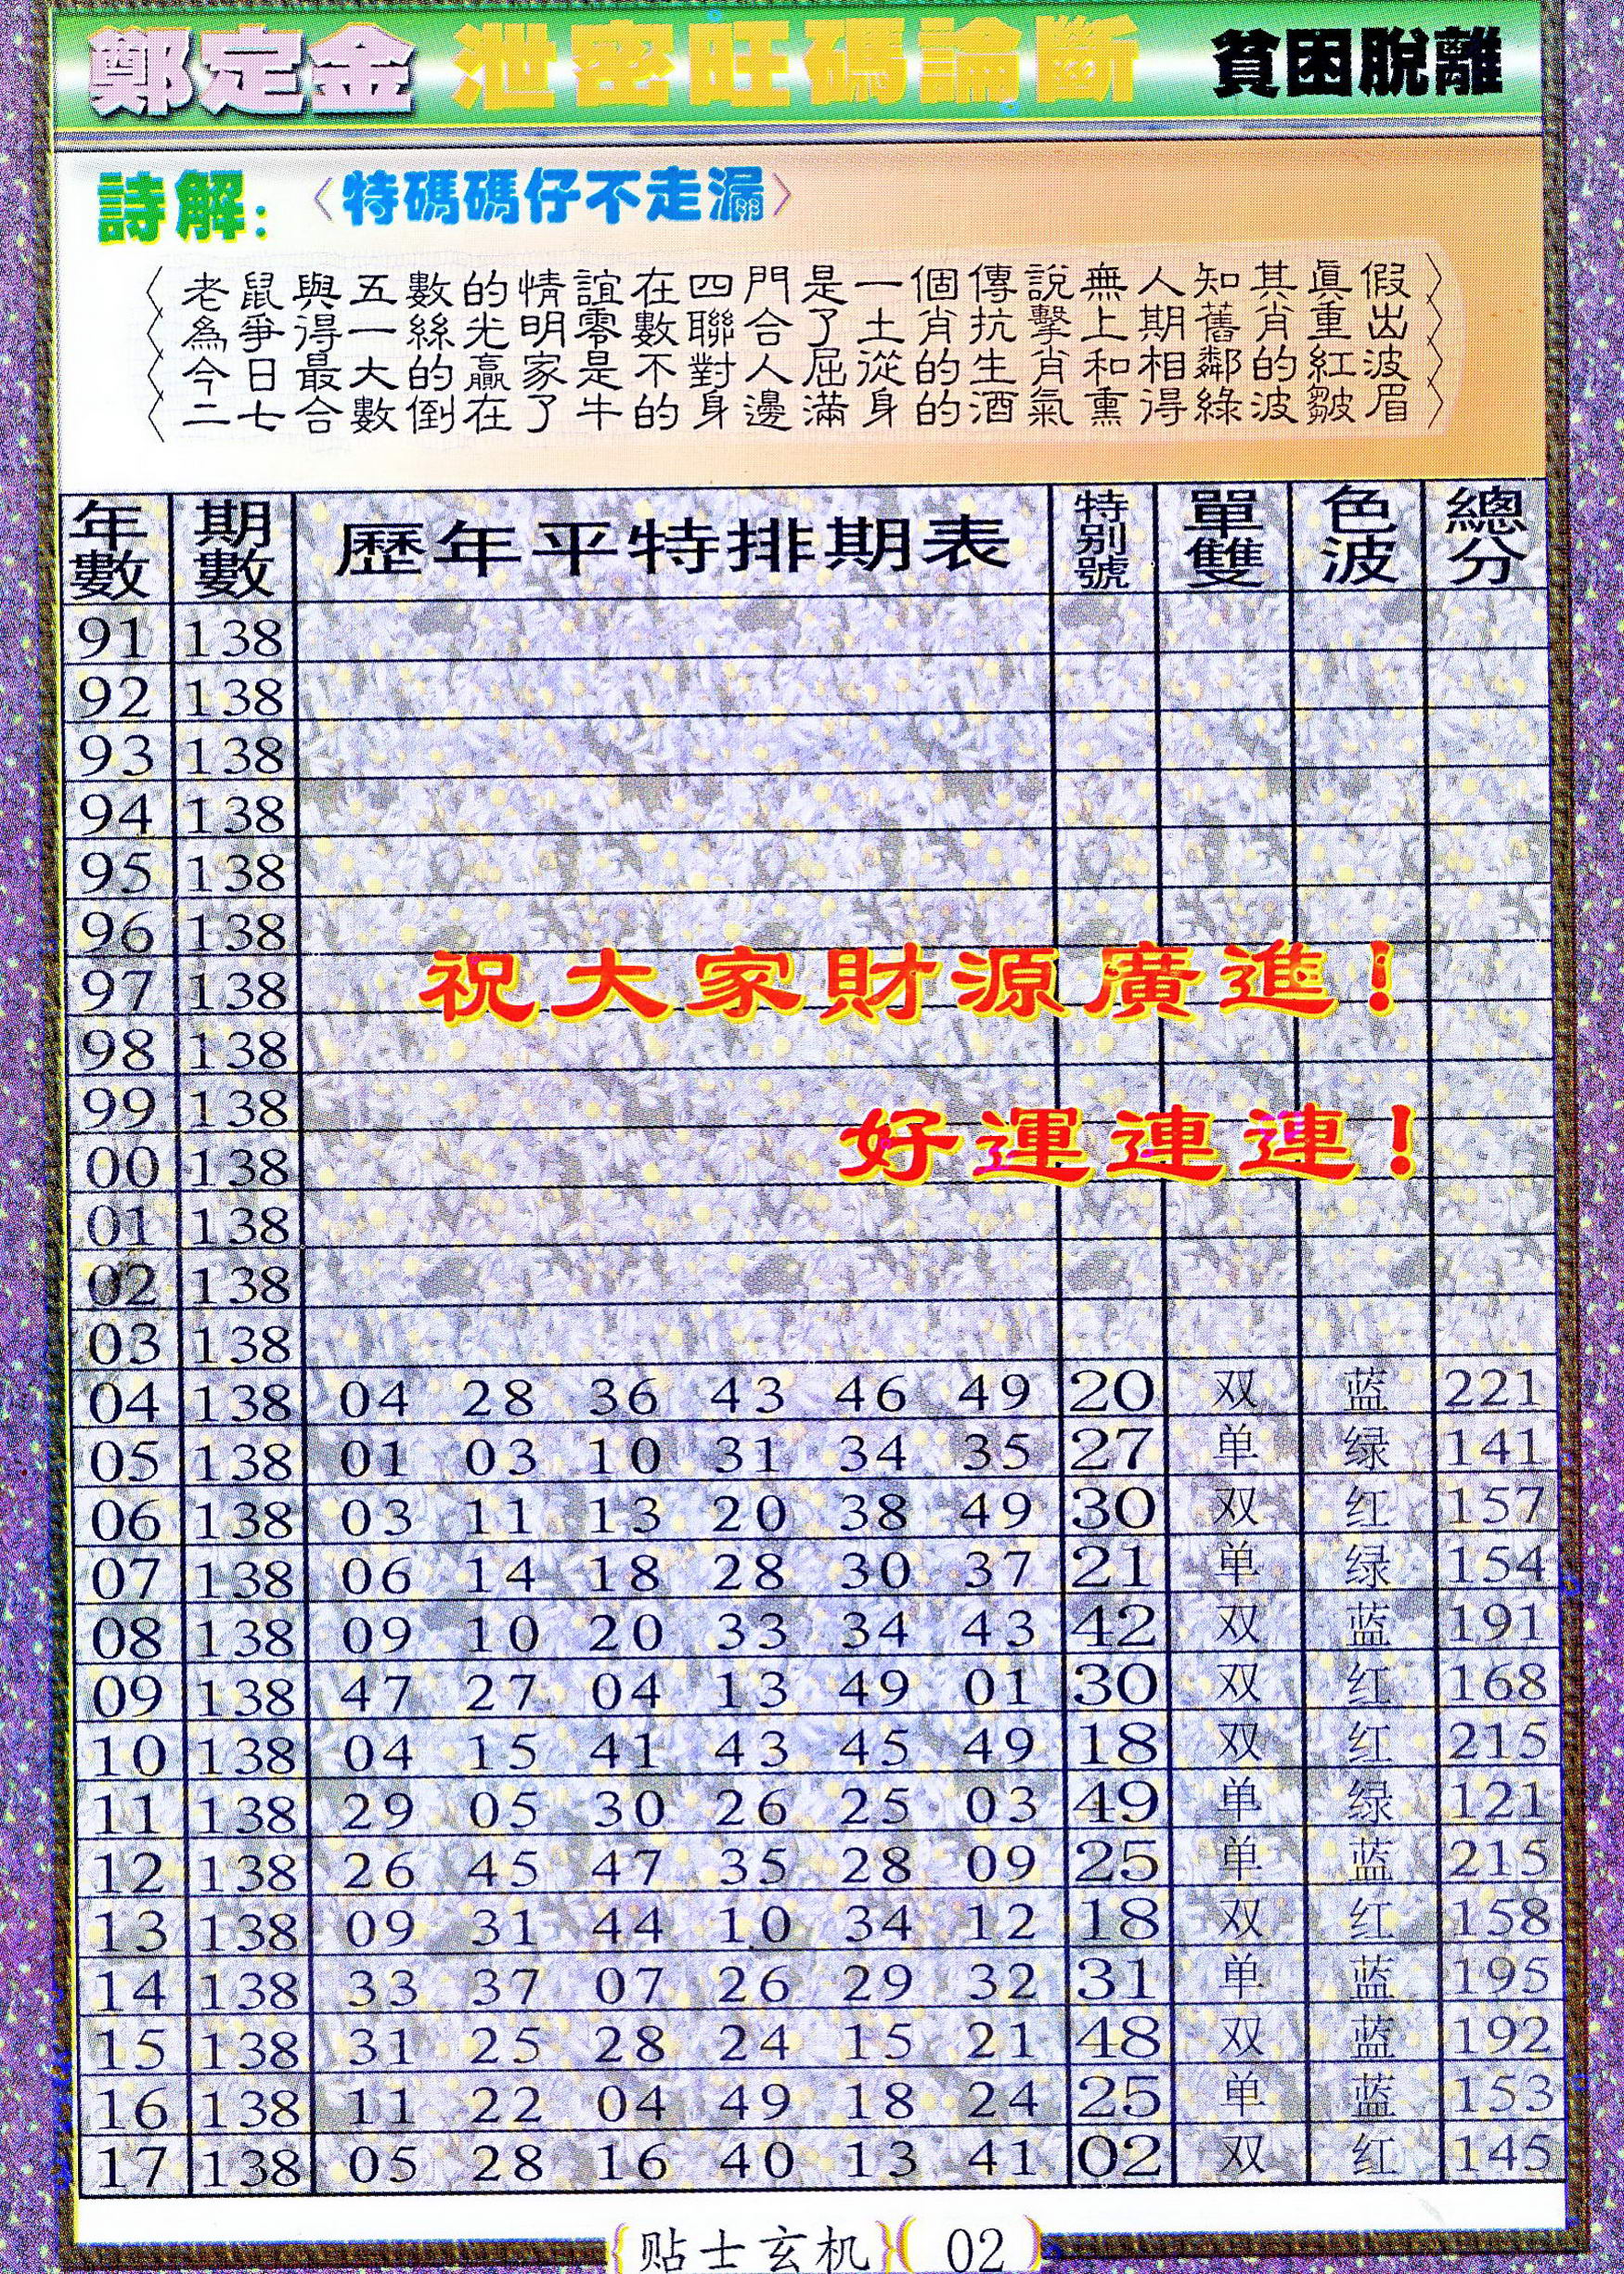 鄭定金 泄密旺碼論斷 貧困脫離
詩解：〈特碼碼仔不走漏〉
〈老鼠與五數的情誼在四門是一個傳說無人知其眞假〉
〈為爭得一絲光明零數聯合了土肖抗擊上期舊肖重出〉
〈今日最大的贏家是不對人屈從的生肖和相鄰的紅波〉
〈二七合數倒在了牛的身邊滿身的酒氣熏得綠波皺眉〉
年數 期數 歷年平特排期表 特別號 單雙 色波 總分
91 138
92 138
93 138
94 138
95 138
96 138
97 138
祝大家財源廣進！
98 138
99 138
好運連連！
00 138
01 138
02 138
03 138
04 138 04 28 36 43 46 49 20 双 蓝 221
05 138 01 03 10 31 34 35 27 单 绿 141
06 138 03 11 13 20 38 49 30 双 红 157
07 138 06 14 18 28 30 37 21 单 绿 154
08 138 09 10 20 33 34 43 42 双 蓝 191
09 138 47 27 04 13 49 01 30 双 红 168
10 138 04 15 41 43 45 49 18 双 红 215
11 138 29 05 30 26 25 03 49 单 绿 121
12 138 26 45 47 35 28 09 25 单 蓝 215
13 138 09 31 44 10 34 12 18 双 红 158
14 138 33 37 07 26 29 32 31 单 蓝 195
15 138 31 25 28 24 15 21 48 双 蓝 192
16 138 11 22 04 49 18 24 25 单 蓝 153
17 138 05 28 16 40 13 41 02 双 红 145
{贴士玄机}(02)